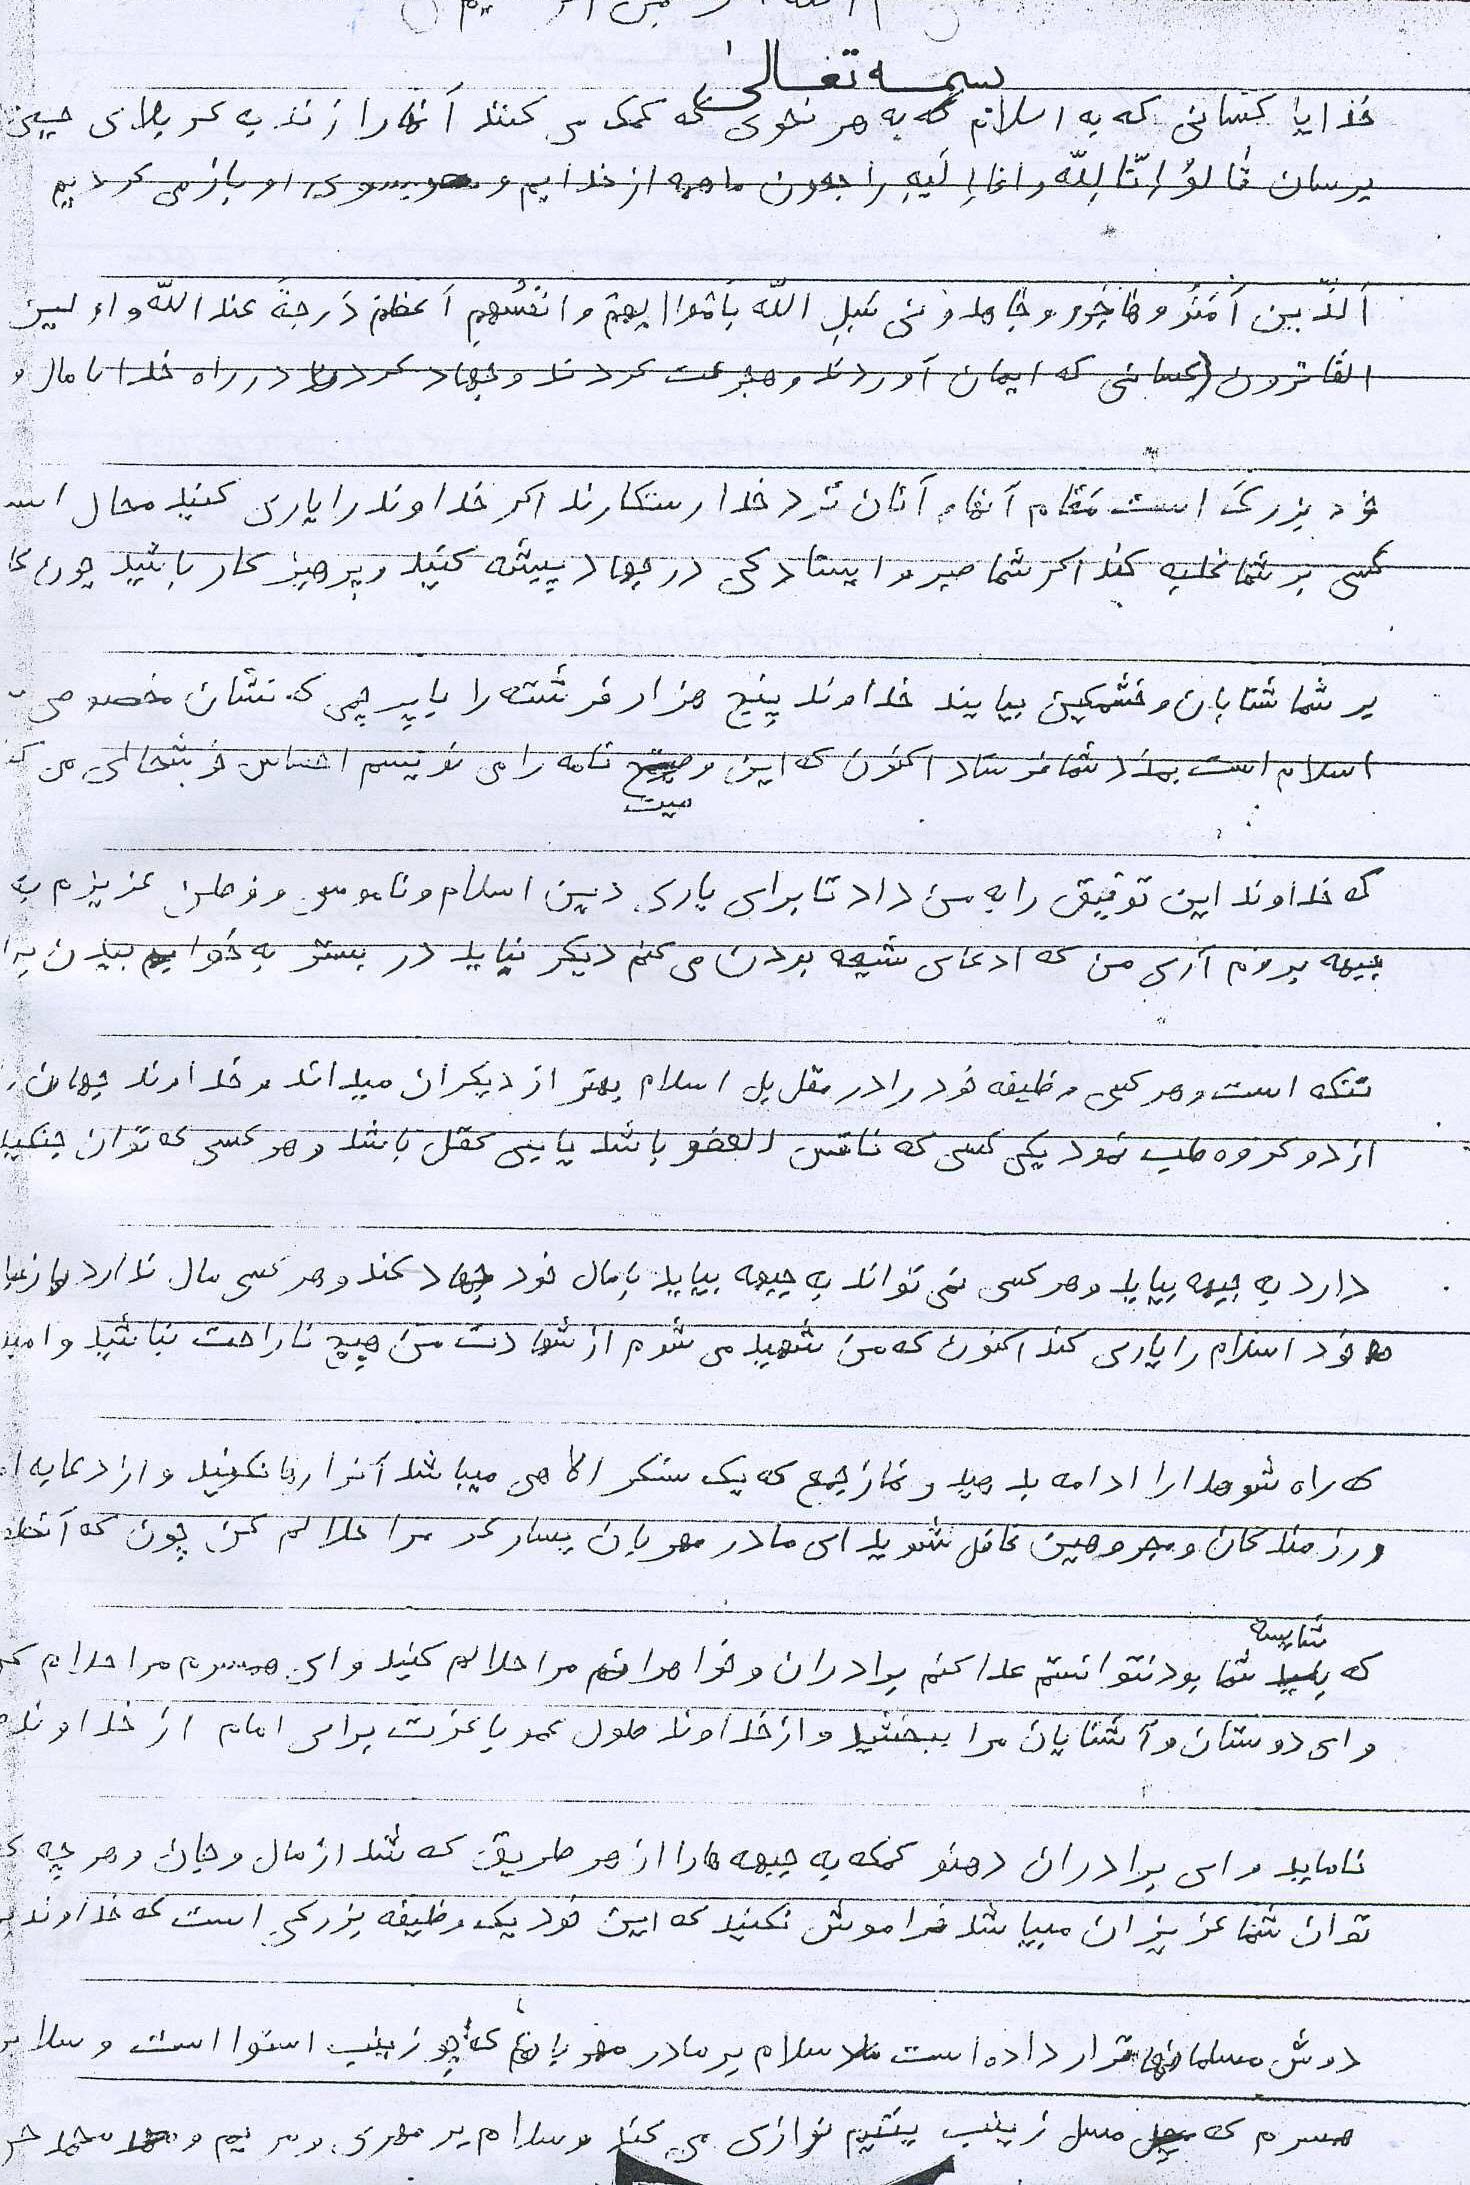 بسمه تعالی
خدایا کسانی که به اسلام که به هر نحوی که کمک می کنند آنها را زند به کربلای حسین
برسان قالوُ اِنّا لِلّه و انا اِلَیهِ راجعون ما همه از خدایم و بسوی او باز می گردیم
اَلذّین آمَنُو و هاجرو و جاهدو فی سَبیلِ اللّه بِاَموا لهِم و انفُسُهِم اَعظم دَرجةً عند اللّه و اولیئ
الفائزون (کسانی که ایمان آوردند و هجرت کردند و جهاد کردند در راه خدا با مال و
خود بزرگ است مقام آنها و آنان نزد خدا رستگارند اگر خداوند را یاری کنید محال است
کسی بر شما غلبه کند اگر شما صبر و ایستادگی در جهاد پیشه کنید و پرهیزگار باشید چون
بر شما شتابان و خشمگین بیایند خداوند پنج هزار فرشته را با پرچمی که نشان مخصوصی
اسلام است بمدد شما فرستاد اکنون که این وصیت نامه را می نویسم احساس خوشحالی می
میت
که خداوند این توفیق را به من داد تا برای یاری دین اسلام و ناموس و وطن عزیزم به
جبهه بروم آری من که ادعای شیعه بودن می کنم دیگر نباید در بستر به خوابم بیدن
تنگه است و هر کسی وظیفه خود را در مقل بل اسلام بهتر از دیگران میداند و خداوند جهاد
از دو گروه طلب نمود یکی کسی که ناقس العضو باشد یا بی عقل باشد و هر کسی که توان جنگید
دارد به جبهه بیاید و هر کسی نمی تواند به جبهه بیاید با مال خود جهاد کند و هر کسی مال ندارد
خود اسلام را یاری کند اکنون که من شهید می شوم از شهادت من هیچ ناراحت نباشید و امید
که راه شهدا را ادامه بدهید و نماز جمع که یک سنگر الاهی میباشد آنرا رها نکنید و از دعا به
و رزمندگان و مجروهین غافل نشوید ای مادر مهربان بسار گر مرا حلالم کن چون که
شایسه
که شما بود نتوانستم عدا کنم برادران و خواهرانم مرا حلالم کنید و ای همسرم مرا حلالم
و ای دوستان و آشنایان مرا ببخشید و از خداوند طول عمر با عزت برای امام از خداوند
نامایید و ای برادران دهنو کمک به جبهه ها را از هر طریق که شد از مال و جان و هر چه
توان شما عزیزان میباشد فراموش نکنید که این خود یک وظیفه بزرگی است که خداوند
دوش مسلمانها قرار داده است سلام بر مادر مهربانم که چو زینب استوا است و سلا
همسرم که مسل زینب یتیم نوازی می کند و سلام بر مهری و مریم و محمد